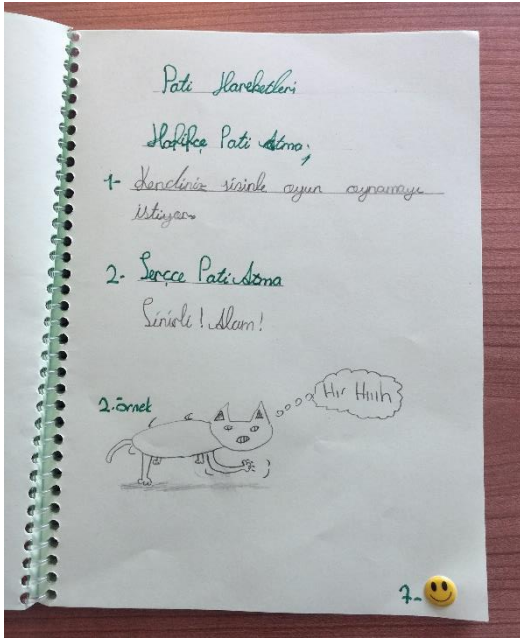 Pati Hareketleri
Hafifçe Pati Atma;
1- Kendiniz sizinle oyun oynamayı
istiyor.
2- Sertçe Pati Atma
Sinirli! Alam!
2. örnek
Hır Hıııh
7-